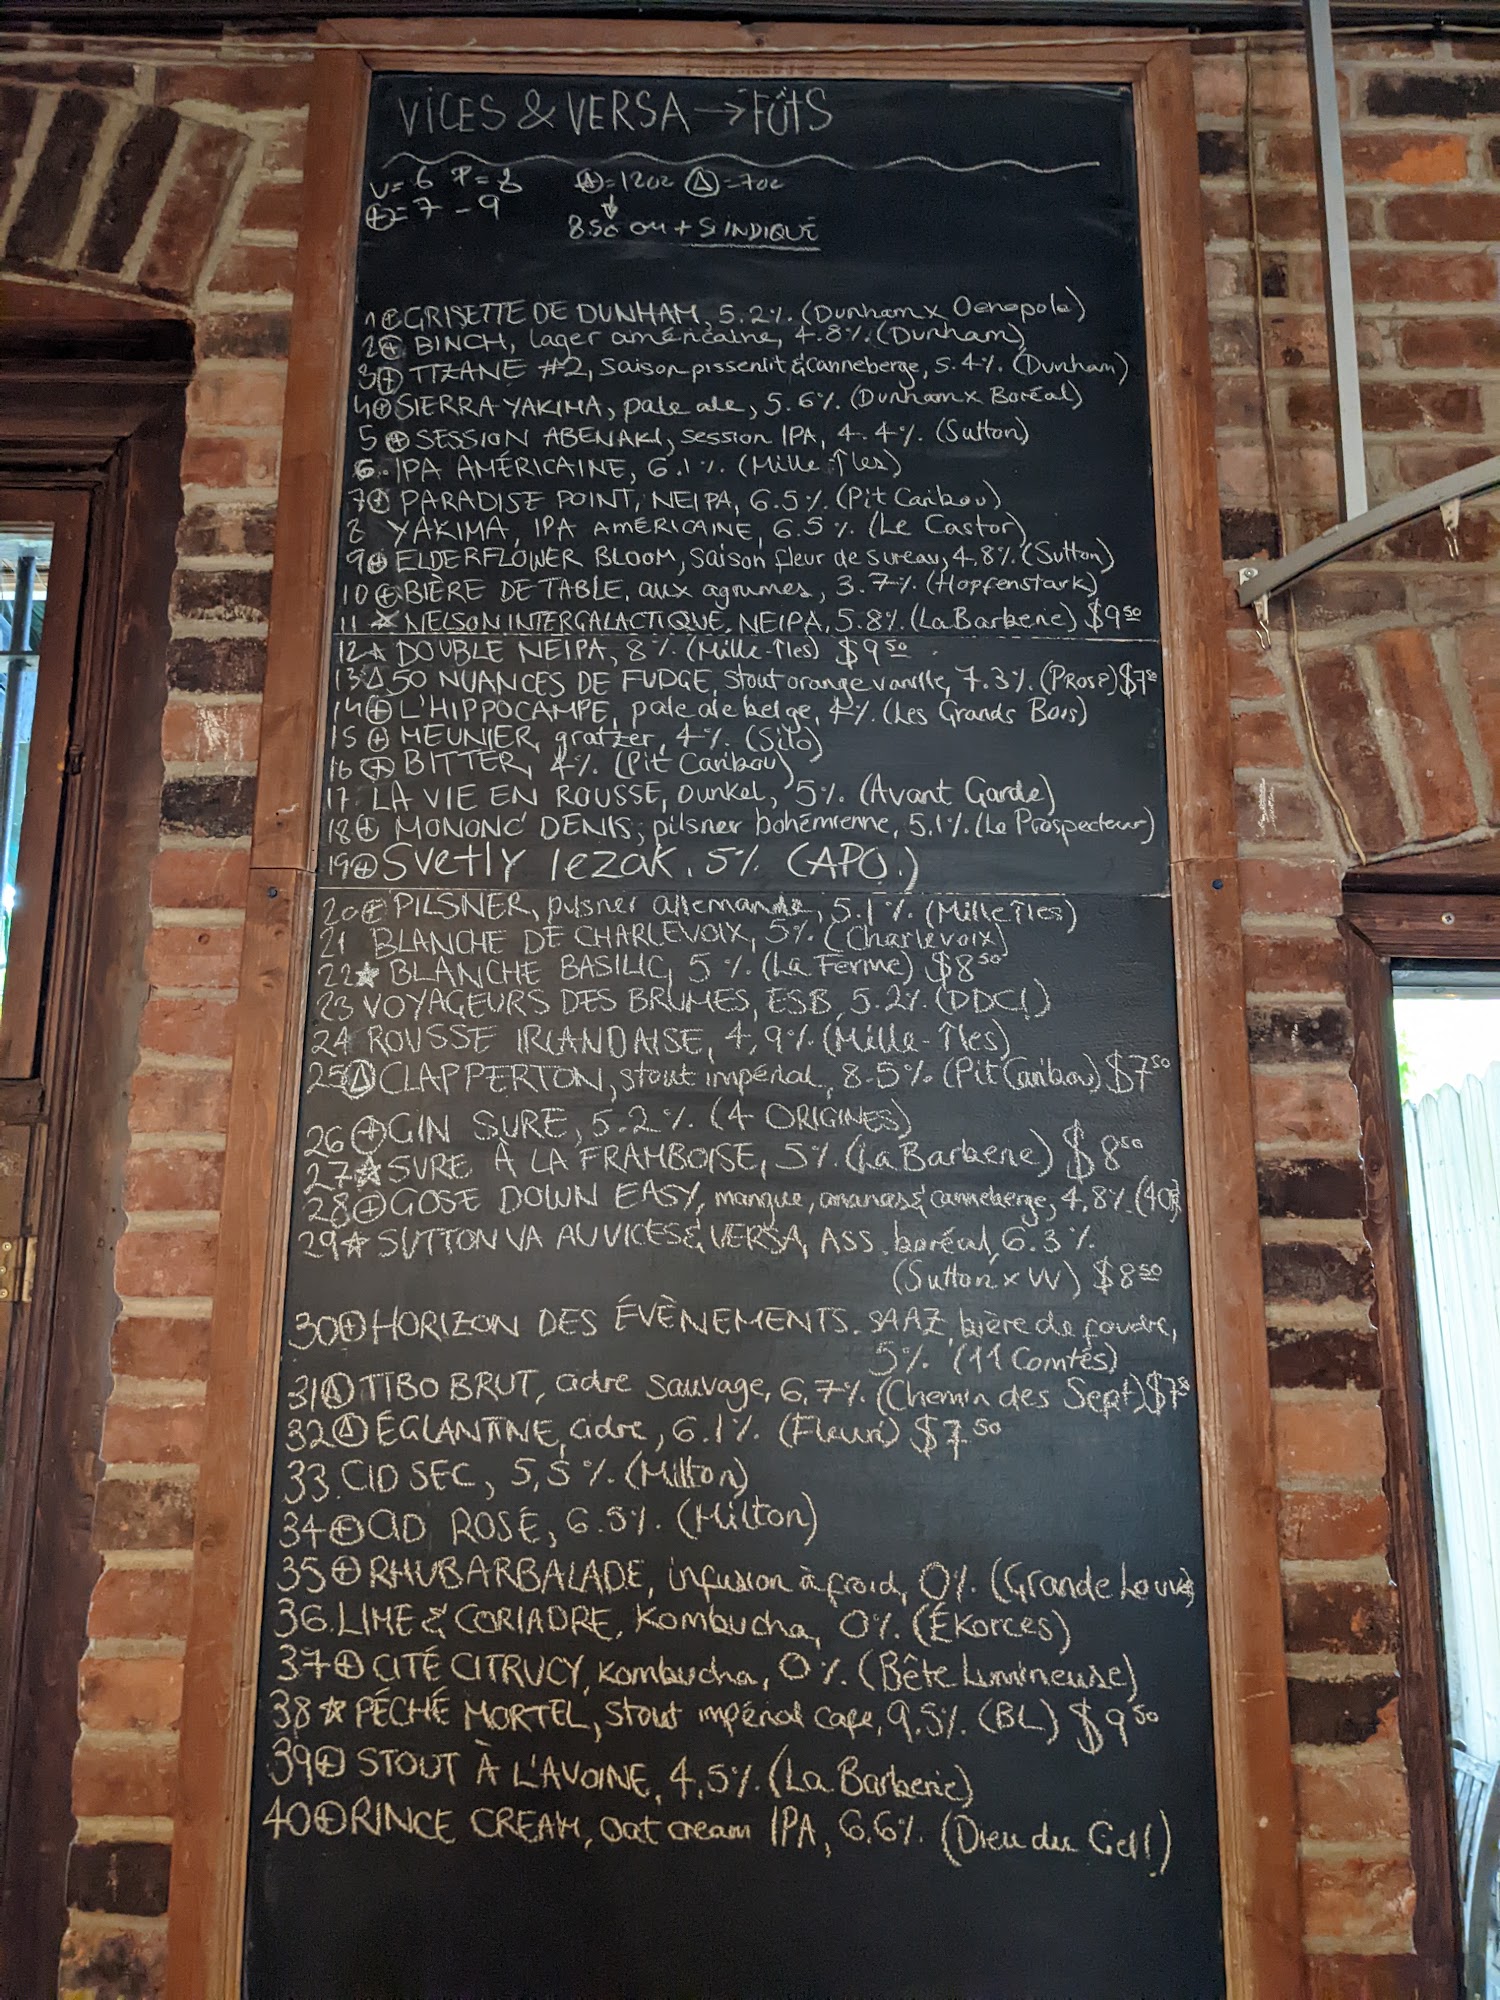 VICES & VERSA → FÛTS
V = 6 P = 8 ☆ = 12oz △ = 7oz
⊕ = 7 - 9 ↓
850 ou + SI INDIQUÉ
1 ⊕ GRISETTE DE DUNHAM, 5.2%. (Dunham x Oenopole)
2 ⊕ BINCH, lager américaine, 4.8%. (Dunham)
3 ⊕ TIZANE #2, Saison pissenlit & Canneberge, 5.4%. (Dunham)
4 ⊕ SIERRA YAKIMA, pale ale, 5.6%. (Dunham x Boréal)
5 ⊕ SESSION ABENAKI, session IPA, 4.4%. (Sutton)
6. IPA AMÉRICAINE, 6.1%. (Mille-Îles)
7 ⊕ PARADISE POINT, NEIPA, 6.5%. (Pit Caribou)
8 YAKIMA, IPA AMÉRICAINE, 6.5%. (Le Castor)
9 ⊕ ELDERFLOWER BLOOM, Saison fleur de sureau, 4.8%. (Sutton)
10 ⊕ BIÈRE DE TABLE, aux agrumes, 3.7%. (Hopfenstark)
11 ☆ NELSON INTERGALACTIQUE, NEIPA, 5.8%. (La Barberie) $9 50
12 ☆ DOUBLE NEIPA, 8%. (Mille-Îles) $9 50
13 △ 50 NUANCES DE FUDGE, Stout orange vanille, 7.3%. (Prosp) $7 50
14 ⊕ L'HIPPOCAMPE, pale ale belge, 4%. (Les Grands Bois)
15 ⊕ MEUNIER, gratzer, 4%. (Silo)
16 ⊕ BITTER, 4%. (Pit Caribou)
17. LA VIE EN ROUSSE, Dunkel, 5%. (Avant Garde)
18 ⊕ MONONC' DENIS, pilsner bohémienne, 5.1%. (Le Prospecteur)
19 ⊕ Svetly lezak. 5%. (APO.)
20 ⊕ PILSNER, pilsner allemande, 5.1%. (Mille Îles)
21 BLANCHE DE CHARLEVOIX, 5%. (Charlevoix)
22 ☆ BLANCHE BASILIC, 5%. (La Ferme) $8 50
23 VOYAGEURS DES BRUMES, ESB, 5.2%. (DDCI)
24 ROUSSE IRLANDAISE, 4,9%. (Mille-Îles)
25 △ CLAPPERTON, stout impérial, 8.5%. (Pit Caribou) $7 50
26 ⊕ GIN SURE, 5.2%. (4 ORIGINES)
27 ☆ SURE À LA FRAMBOISE, 5%. (La Barberie) $8 50
28 ⊕ GOSE DOWN EASY, mangue, ananas & canneberge, 4.8%. (4O)
29 ☆ SUTTON VA AU VICES & VERSA, ASS. boréal, 6.3%.
(Sutton x VV) $8 50
30 ⊕ HORIZON DES ÉVÈNEMENTS. SAAZ, bière de foudre,
5%. (11 Comtés)
31 △ TIBO BRUT, cidre sauvage, 6,7%. (Chemin des Sept) $7 50
32 △ ÉGLANTINE, cidre, 6.1%. (Fleuri) $7 50
33. CID SEC, 5,5%. (Milton)
34 ⊕ CID ROSÉ, 6.5%. (Milton)
35 ⊕ RHUBARBALADE, infusion à froid, 0%. (Grande Louve)
36. LIME & CORIADRE, Kombucha, 0%. (Ékorces)
37 ⊕ CITÉ CITRUCY, Kombucha, 0%. (Bête Lumineuse)
38 ☆ PÉCHÉ MORTEL, Stout impérial cafe, 9.5%. (BL) $9 50
39 ⊕ STOUT À L'AVOINE, 4.5%. (La Barberie)
40 ⊕ RINCE CREAM, Oat cream IPA, 6.6%. (Dieu du Ciel!)